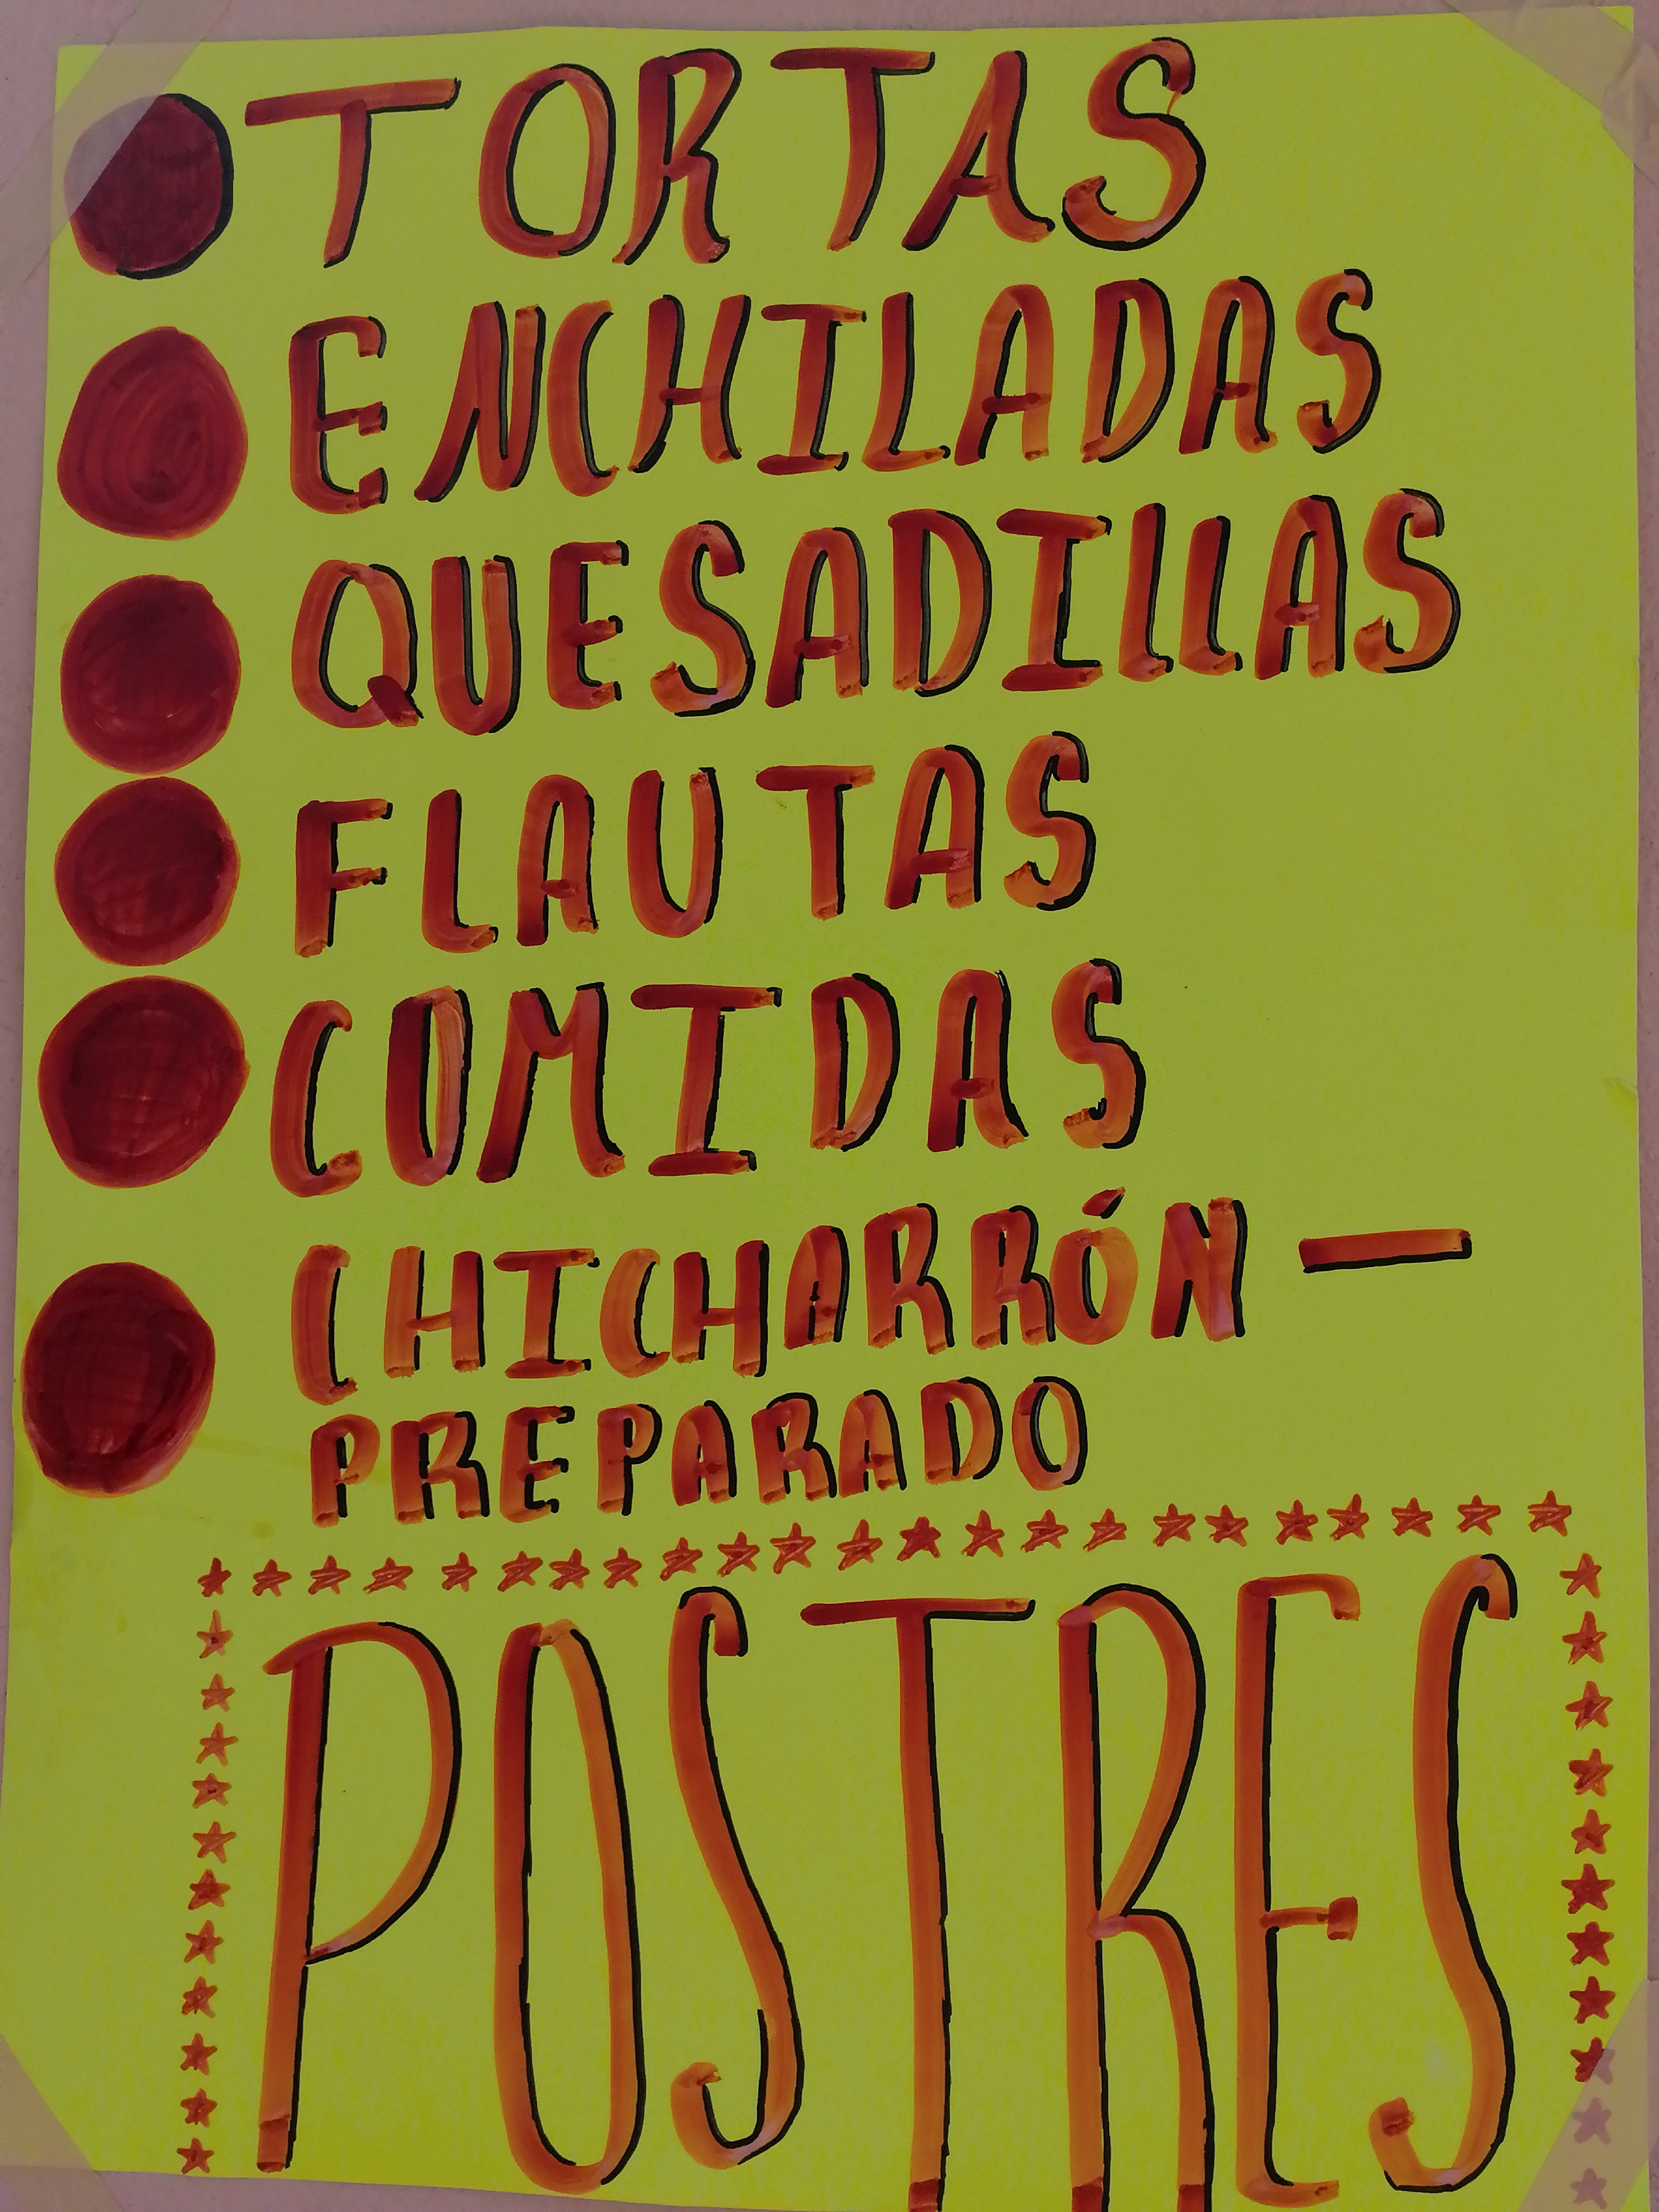 TORTAS
ENCHILADAS
QUESADILLAS
FLAUTAS
COMIDAS
CHICHARRÓN —
PREPARADO
POSTRES